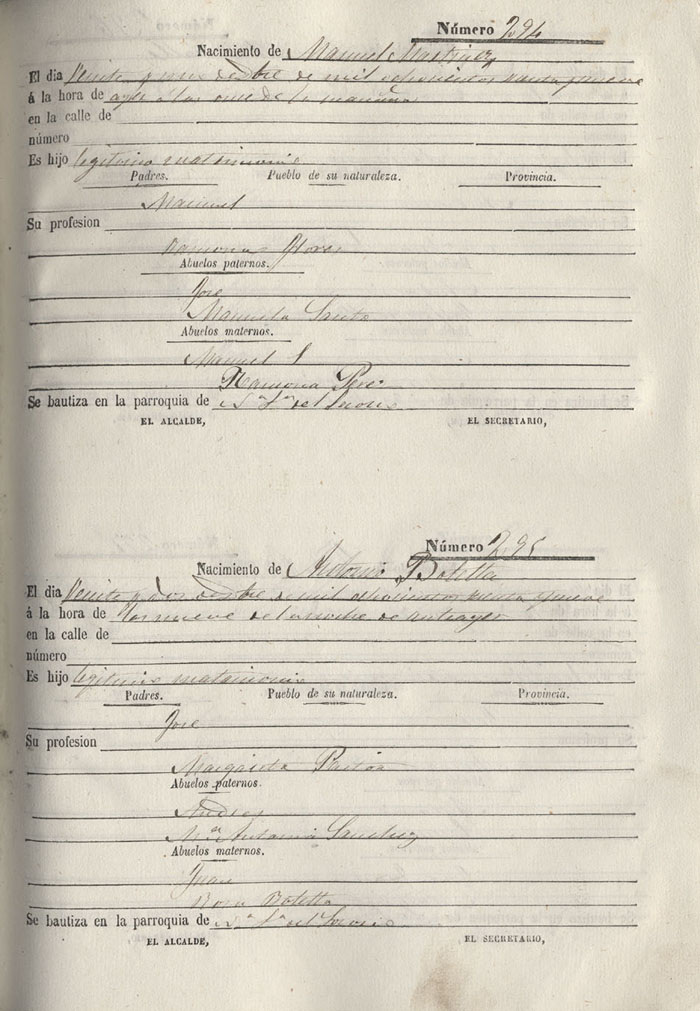 Número 294
Nacimiento de Manuel Martinez
El dia Veinte y de mil ochocientos
á la hora de ayer á las once de la mañana
en la calle de
número
Es hijo legitimo matrimonio
Padres. Pueblo de su naturaleza. Provincia.
Manuel
Su profesion
Ramona
Abuelos paternos.
José
Manuela Santo
Abuelos maternos.
Manuel
Ramona
Se bautiza en la parroquia de N.ª S.ª del
EL ALCALDE, EL SECRETARIO,
Número 295
Nacimiento de Antonio Botella
El dia Veinte y dos de mil ochocientos
á la hora de las nueve de la noche de antiayer
en la calle de
número
Es hijo legitimo matrimonio
Padres. Pueblo de su naturaleza. Provincia.
José
Su profesion
Margarita Pastor
Abuelos paternos.
Andres
M.ª Antonia Sanchez
Abuelos maternos.
Juan
Rosa Botella
Se bautiza en la parroquia de N.ª S.ª del
EL ALCALDE, EL SECRETARIO,